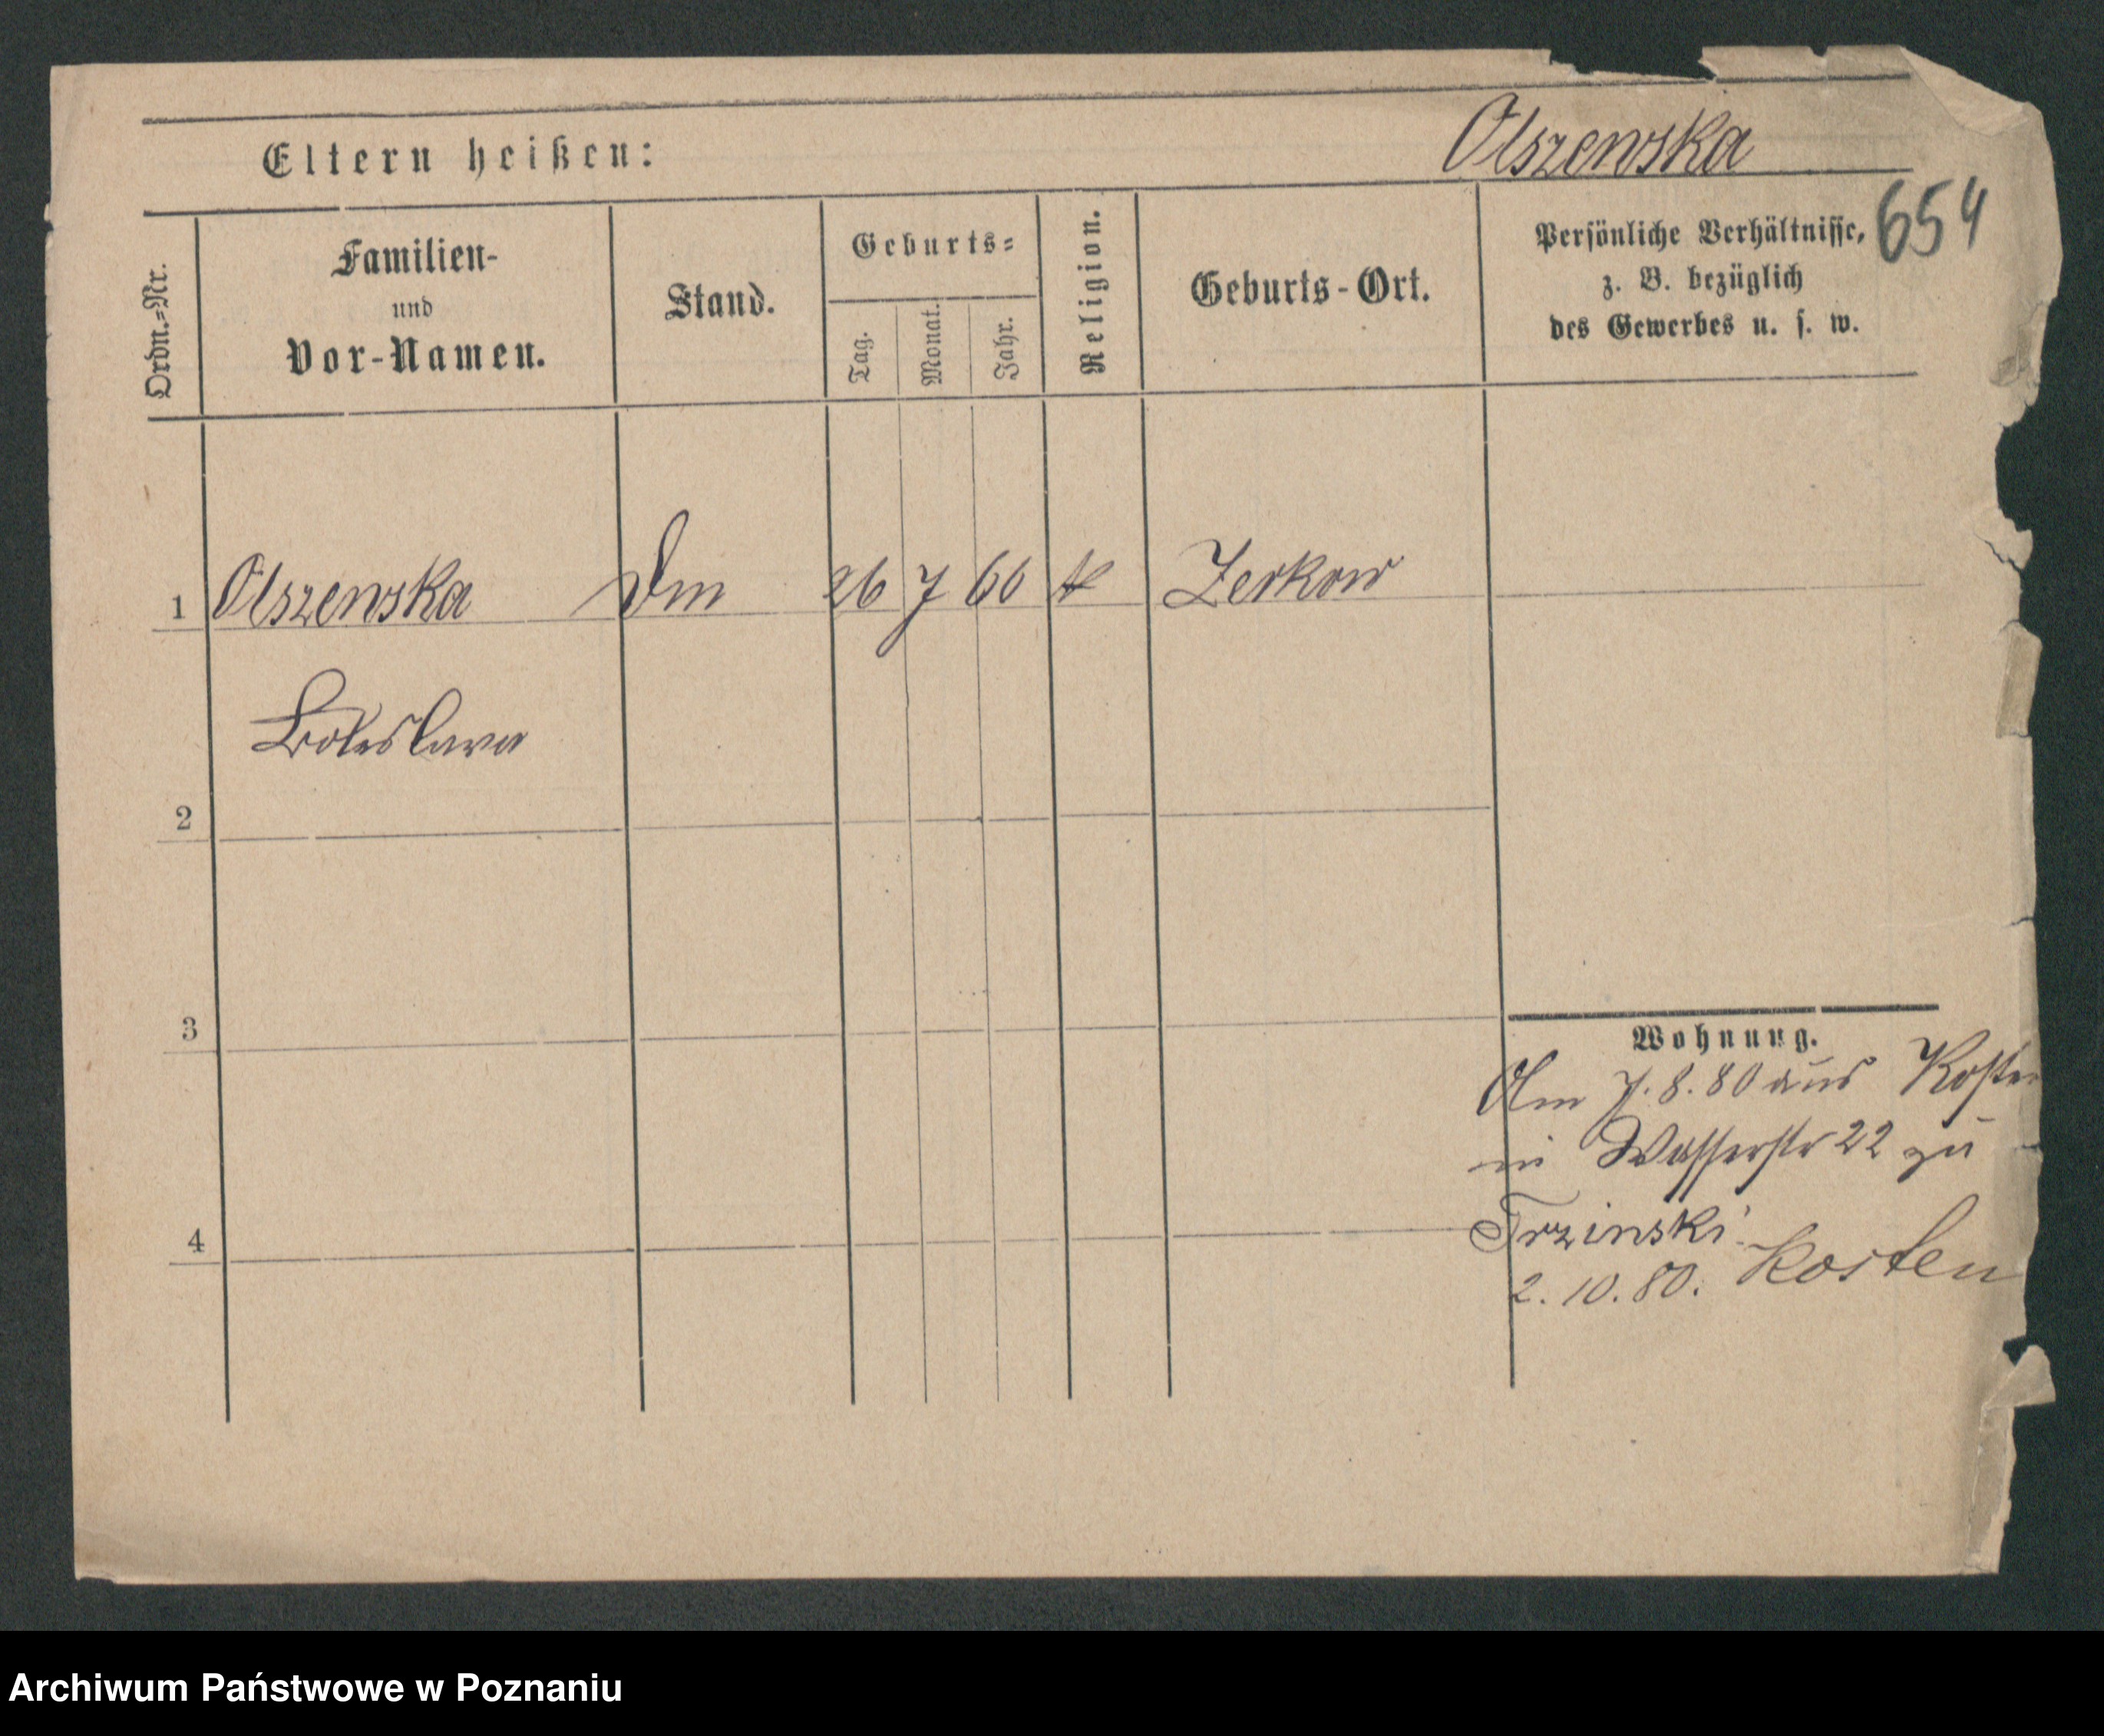 Eltern heißen:
Olszewska
654
Ordn.=Nr.
Familien-
und
Vor-Namen.
Stand.
Geburts=
Tag.
Monat.
Jahr.
Religion.
Geburts-Ort.
Persönliche Verhältnisse,
z. B. bezüglich
des Gewerbes u. s. w.
1 Olszewska 26 7 60 k Zerkow
Boleslawa
2
3
4
Wohnung.
Am 7.8.80 aus Kosten
in Wasserstr 22 zu
Trzinski
2.10.80. Kosten
Archiwum Państwowe w Poznaniu